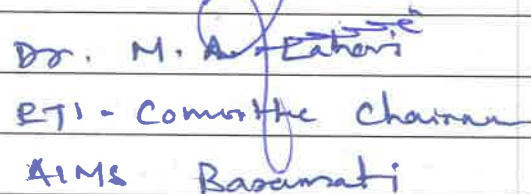 Dr. M. A.
RTI - Committe Chairman
AIMS Baramati